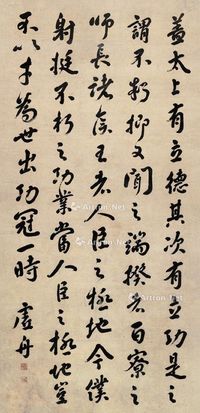 蓋太上有立德其次有立功是之
謂不朽抑又聞之端揆者百寮之
師長諸侯王者人臣之極地今僕
射挺不朽之功業當人臣之極地豈
不以才為世出功冠一時
虛舟